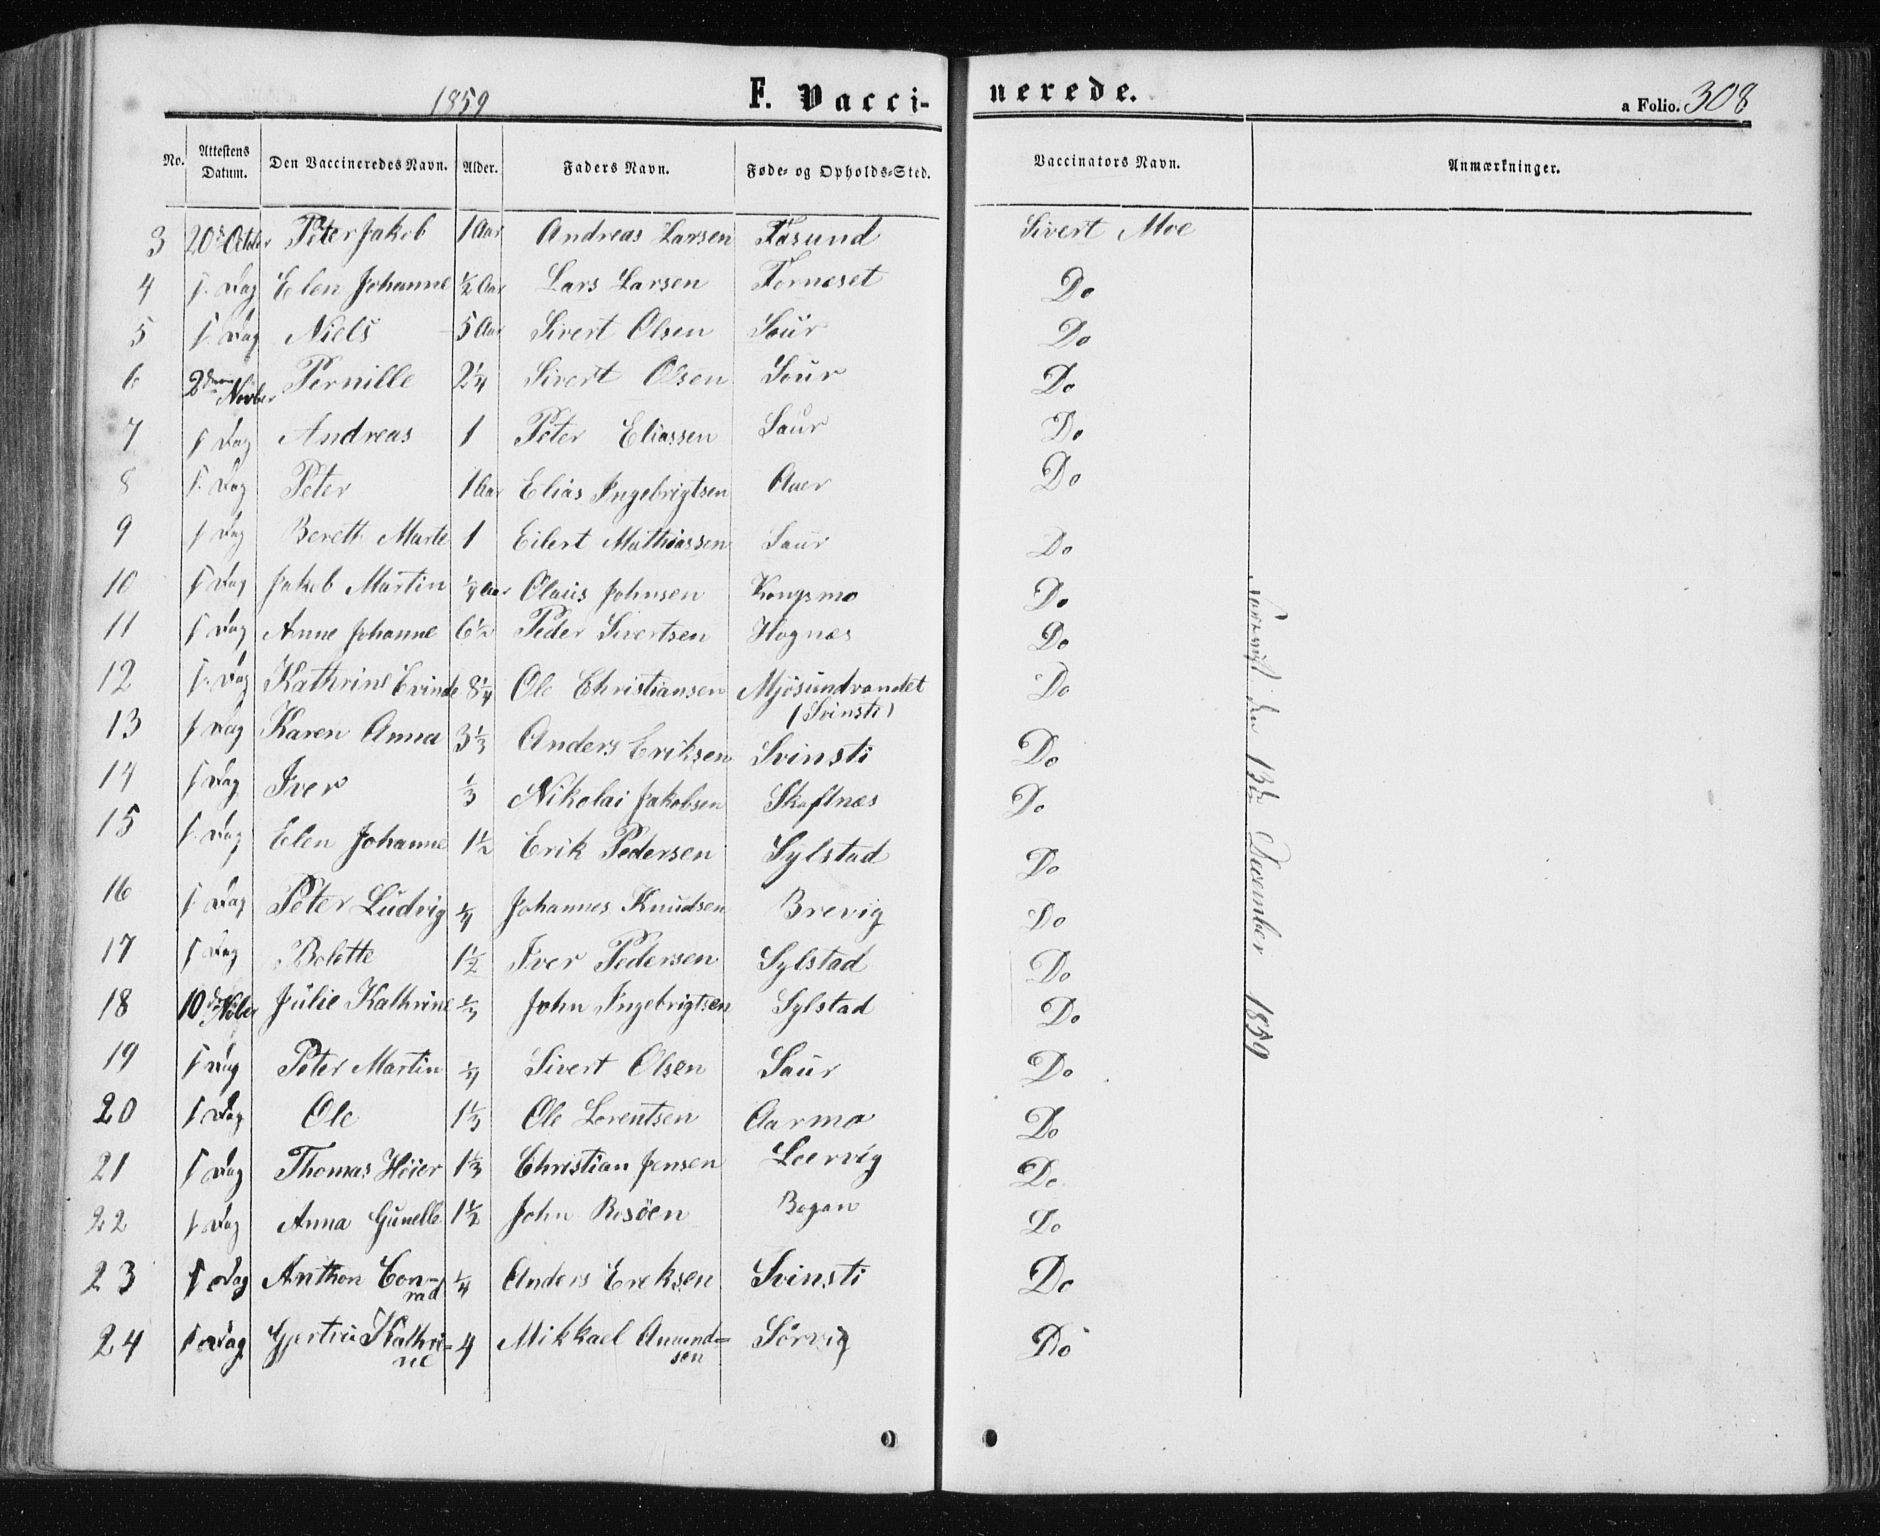 1859
F. Vacci-
nerede.
a Folio. 308
No. Attestens Datum. Den Vaccineredes Navn. Alder. Faders Navn. Føde- og Opholds-Sted. Vaccinators Navn. Anmærkninger.
3 20de October Peter Jakob 1 Aar Andreas Larsen Fasund Sivert Moe
4 s. Dag Elen Johanne ½ Aar Lars Larsen Forneset Do
5 s. Dag Niels 5 Aar Sivert Olsen Saur Do
6 2den Novber Pernille 2¼ Sivert Olsen Saur Do
7 s. Dag Andreas 1 Peter Eliassen Saur Do
8 s. Dag Peter 1 Aar Elias Ingebrigtsen Auer Do
9 s. Dag Bereth Marte 1 Eilert Mathiassen Saur Do
10 s. Dag Jakob Martin ¼ Aar Olaus Johnsen Kongsmo Do
11 s. Dag Anne Johanne 6½ Peder Sivertsen Hognæs Do
12 s. Dag Kathrine Evinde 8¼ Ole Christiansen Mjösundvandet Do
(Svinsti)
13 s. Dag Karen Anna 3⅓ Anders Eriksen Svinsti Do
14 s. Dag Iver ⅓ Nikolai Jakobsen Skaflnæs Do
15 s. Dag Elen Johanne 1½ Erik Pedersen Sylstad Do
16 s. Dag Peter Ludvig ¼ Johannes Knudsen Brevig Do
17 s. Dag Bolette 1½ Iver Pedersen Sylstad Do
18 10de Nvber Julie Kathrine ⅓ John Ingebrigtsen Sylstad Do
19 s. Dag Peter Martin ¼ Sivert Olsen Saur Do
20 s. Dag Ole 1⅓ Ole Lorentsen Aarmo Do
21 s. Dag Thomas Höier 1⅓ Christian Jensen Leervig Do
22 s. Dag Anna Gunelle 1½ John Risöen Bogan Do
23 s. Dag Anthon Con- ¼ Anders Ereksen Svinsti Do
rad
24 s. Dag Gjertru Kathri- 4 Mikkael Amund= Sörvig Do
ne
sen
den 13de December 1859